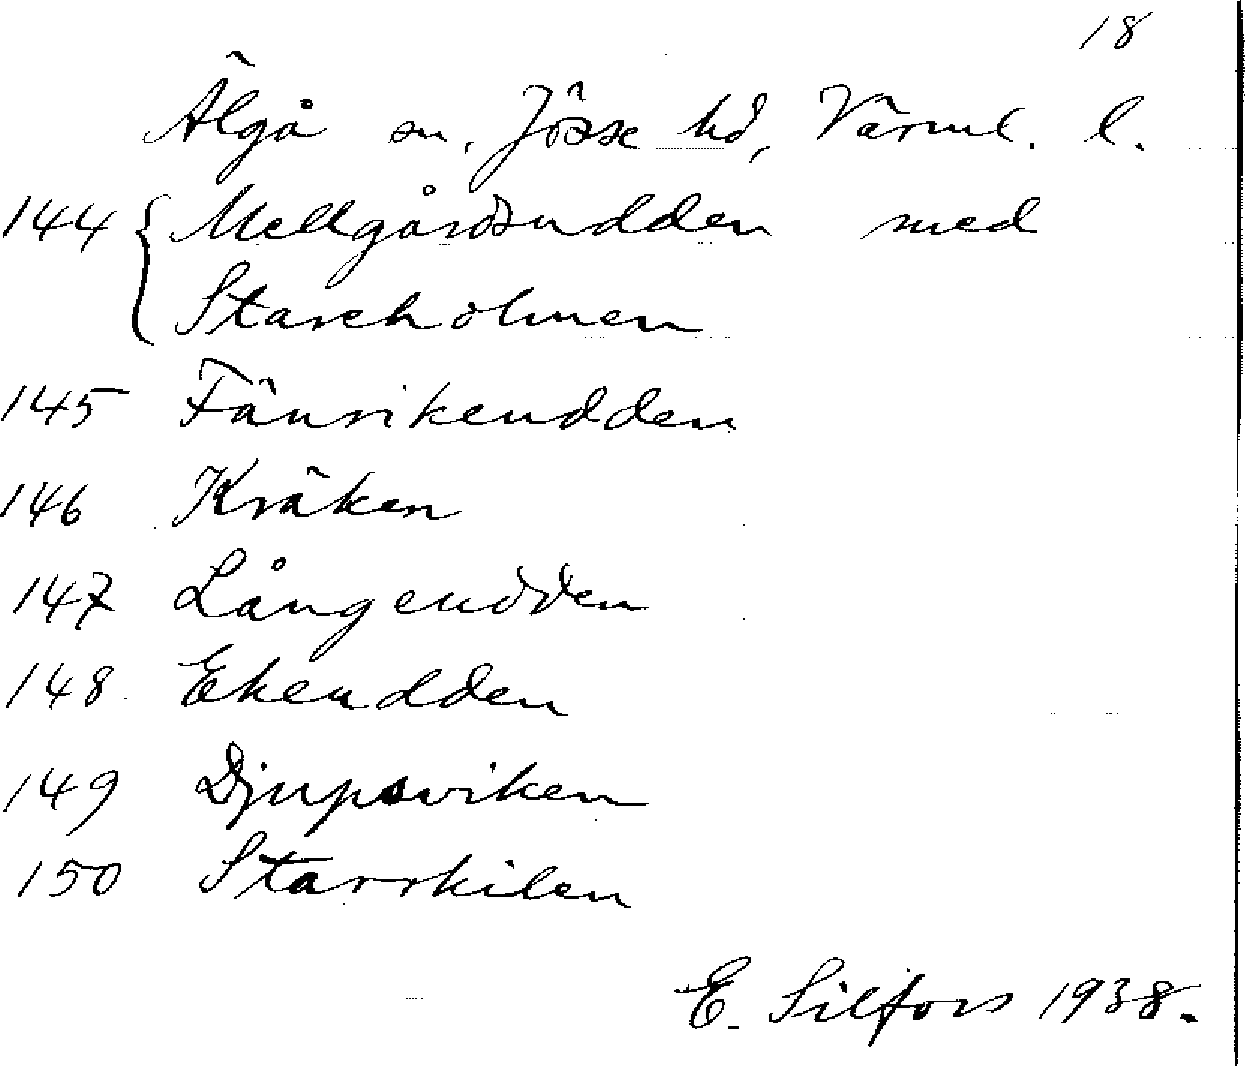 18
Älgå sn. Jösse hd, Värml. l.
144 { Mellgårdsudden med
Starrholmen
145 Fänrikeudden
146 Kräken
147 Långeudden
148 Ekeudden
149 Djupsviken
150 Starrkilen
E. Silfors 1938.